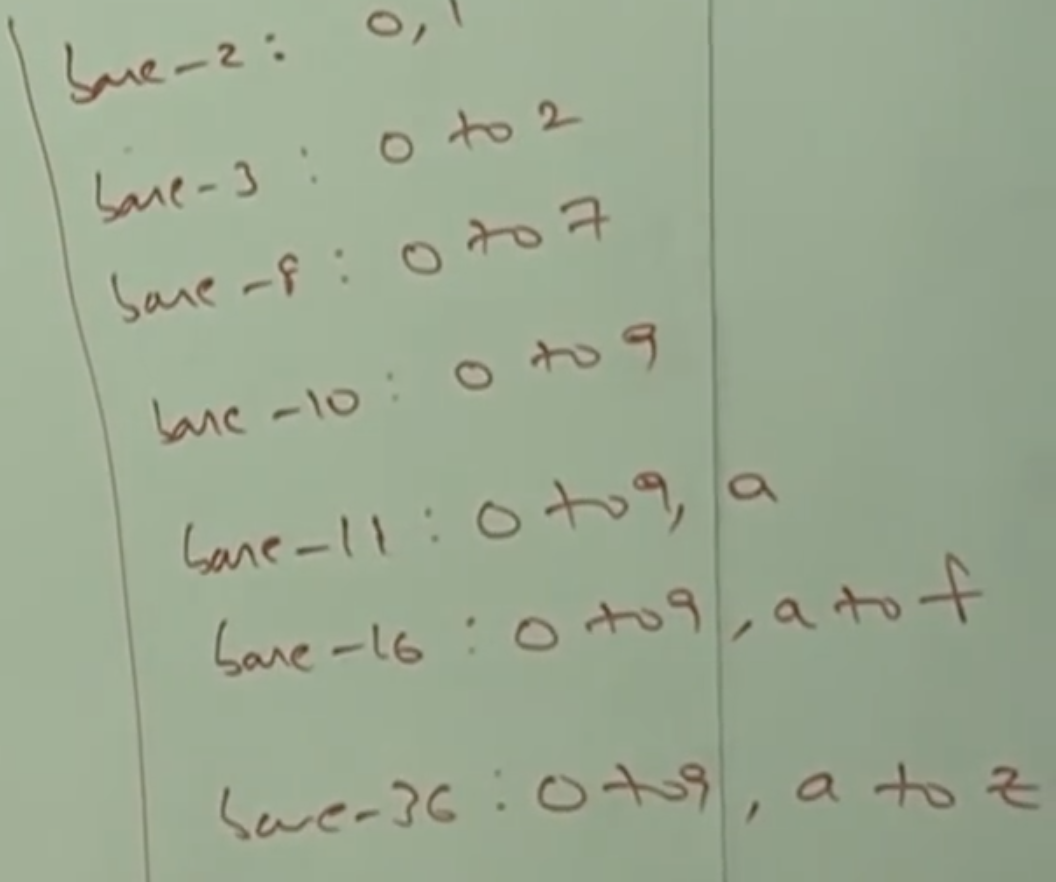 base-2: 0,1
base-3: 0 to 2
base-8: 0 to 7
base-10: 0 to 9
base-11: 0 to 9, a
base-16: 0 to 9, a to f
base-36: 0 to 9, a to z